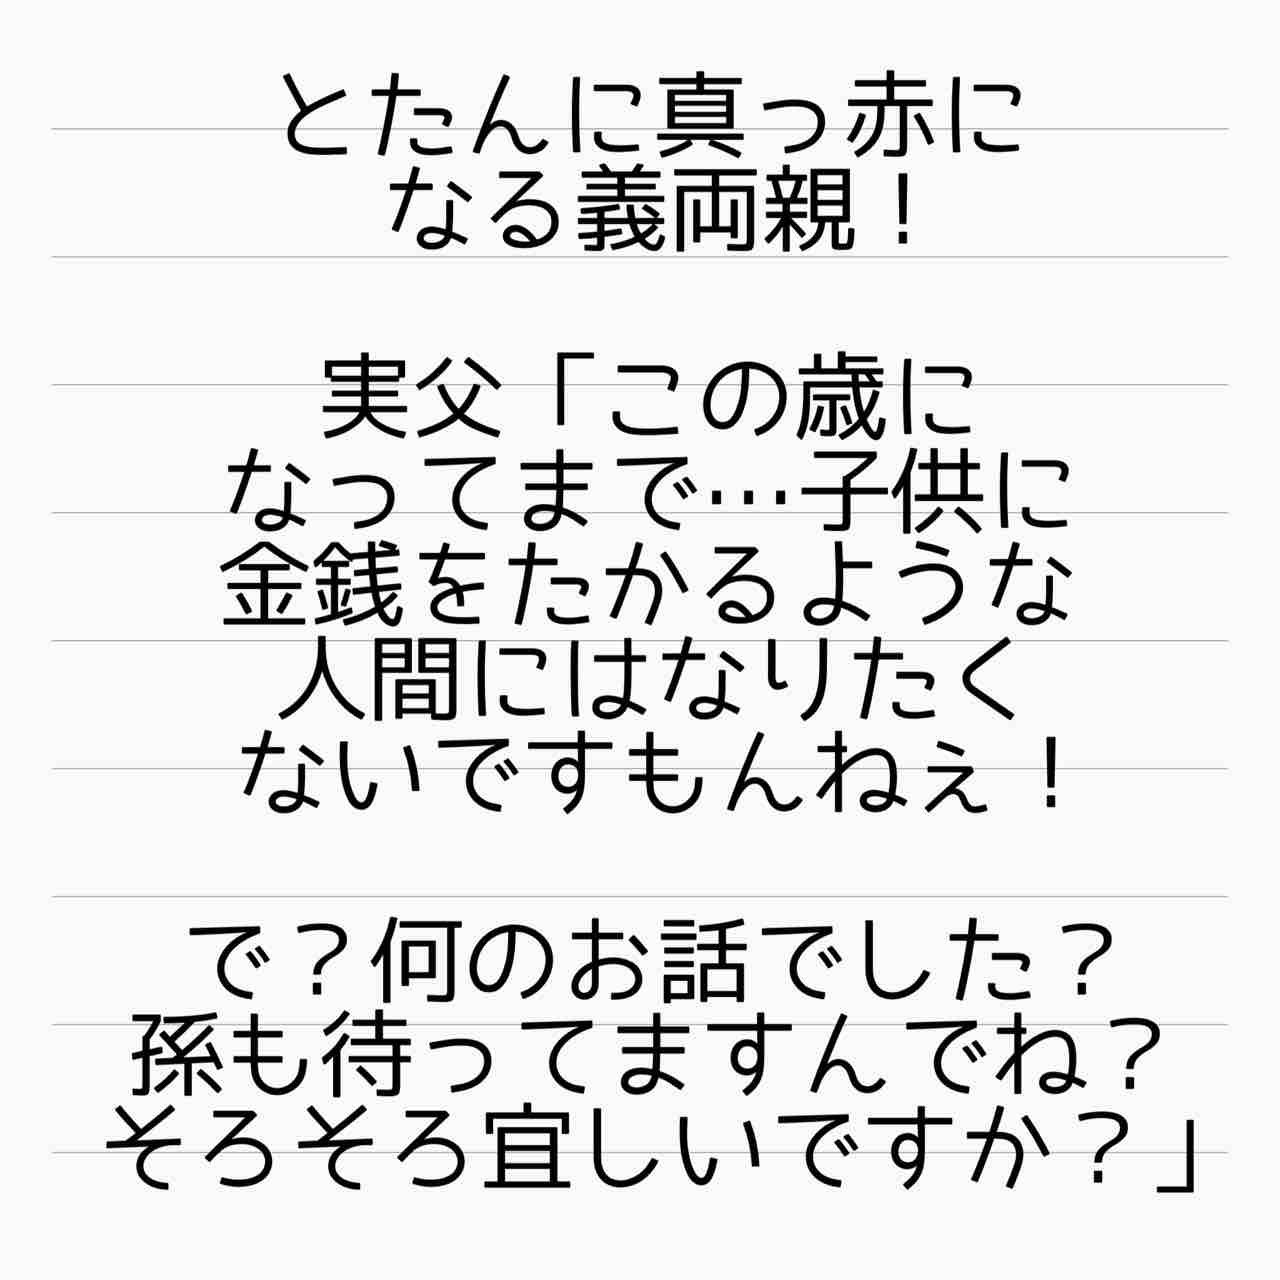 とたんに真っ赤に
なる義両親！
実父「この歳に
なってまで…子供に
金銭をたかるような
人間にはなりたく
ないですもんねぇ！
で？何のお話でした？
孫も待ってますんでね？
そろそろ宜しいですか？」